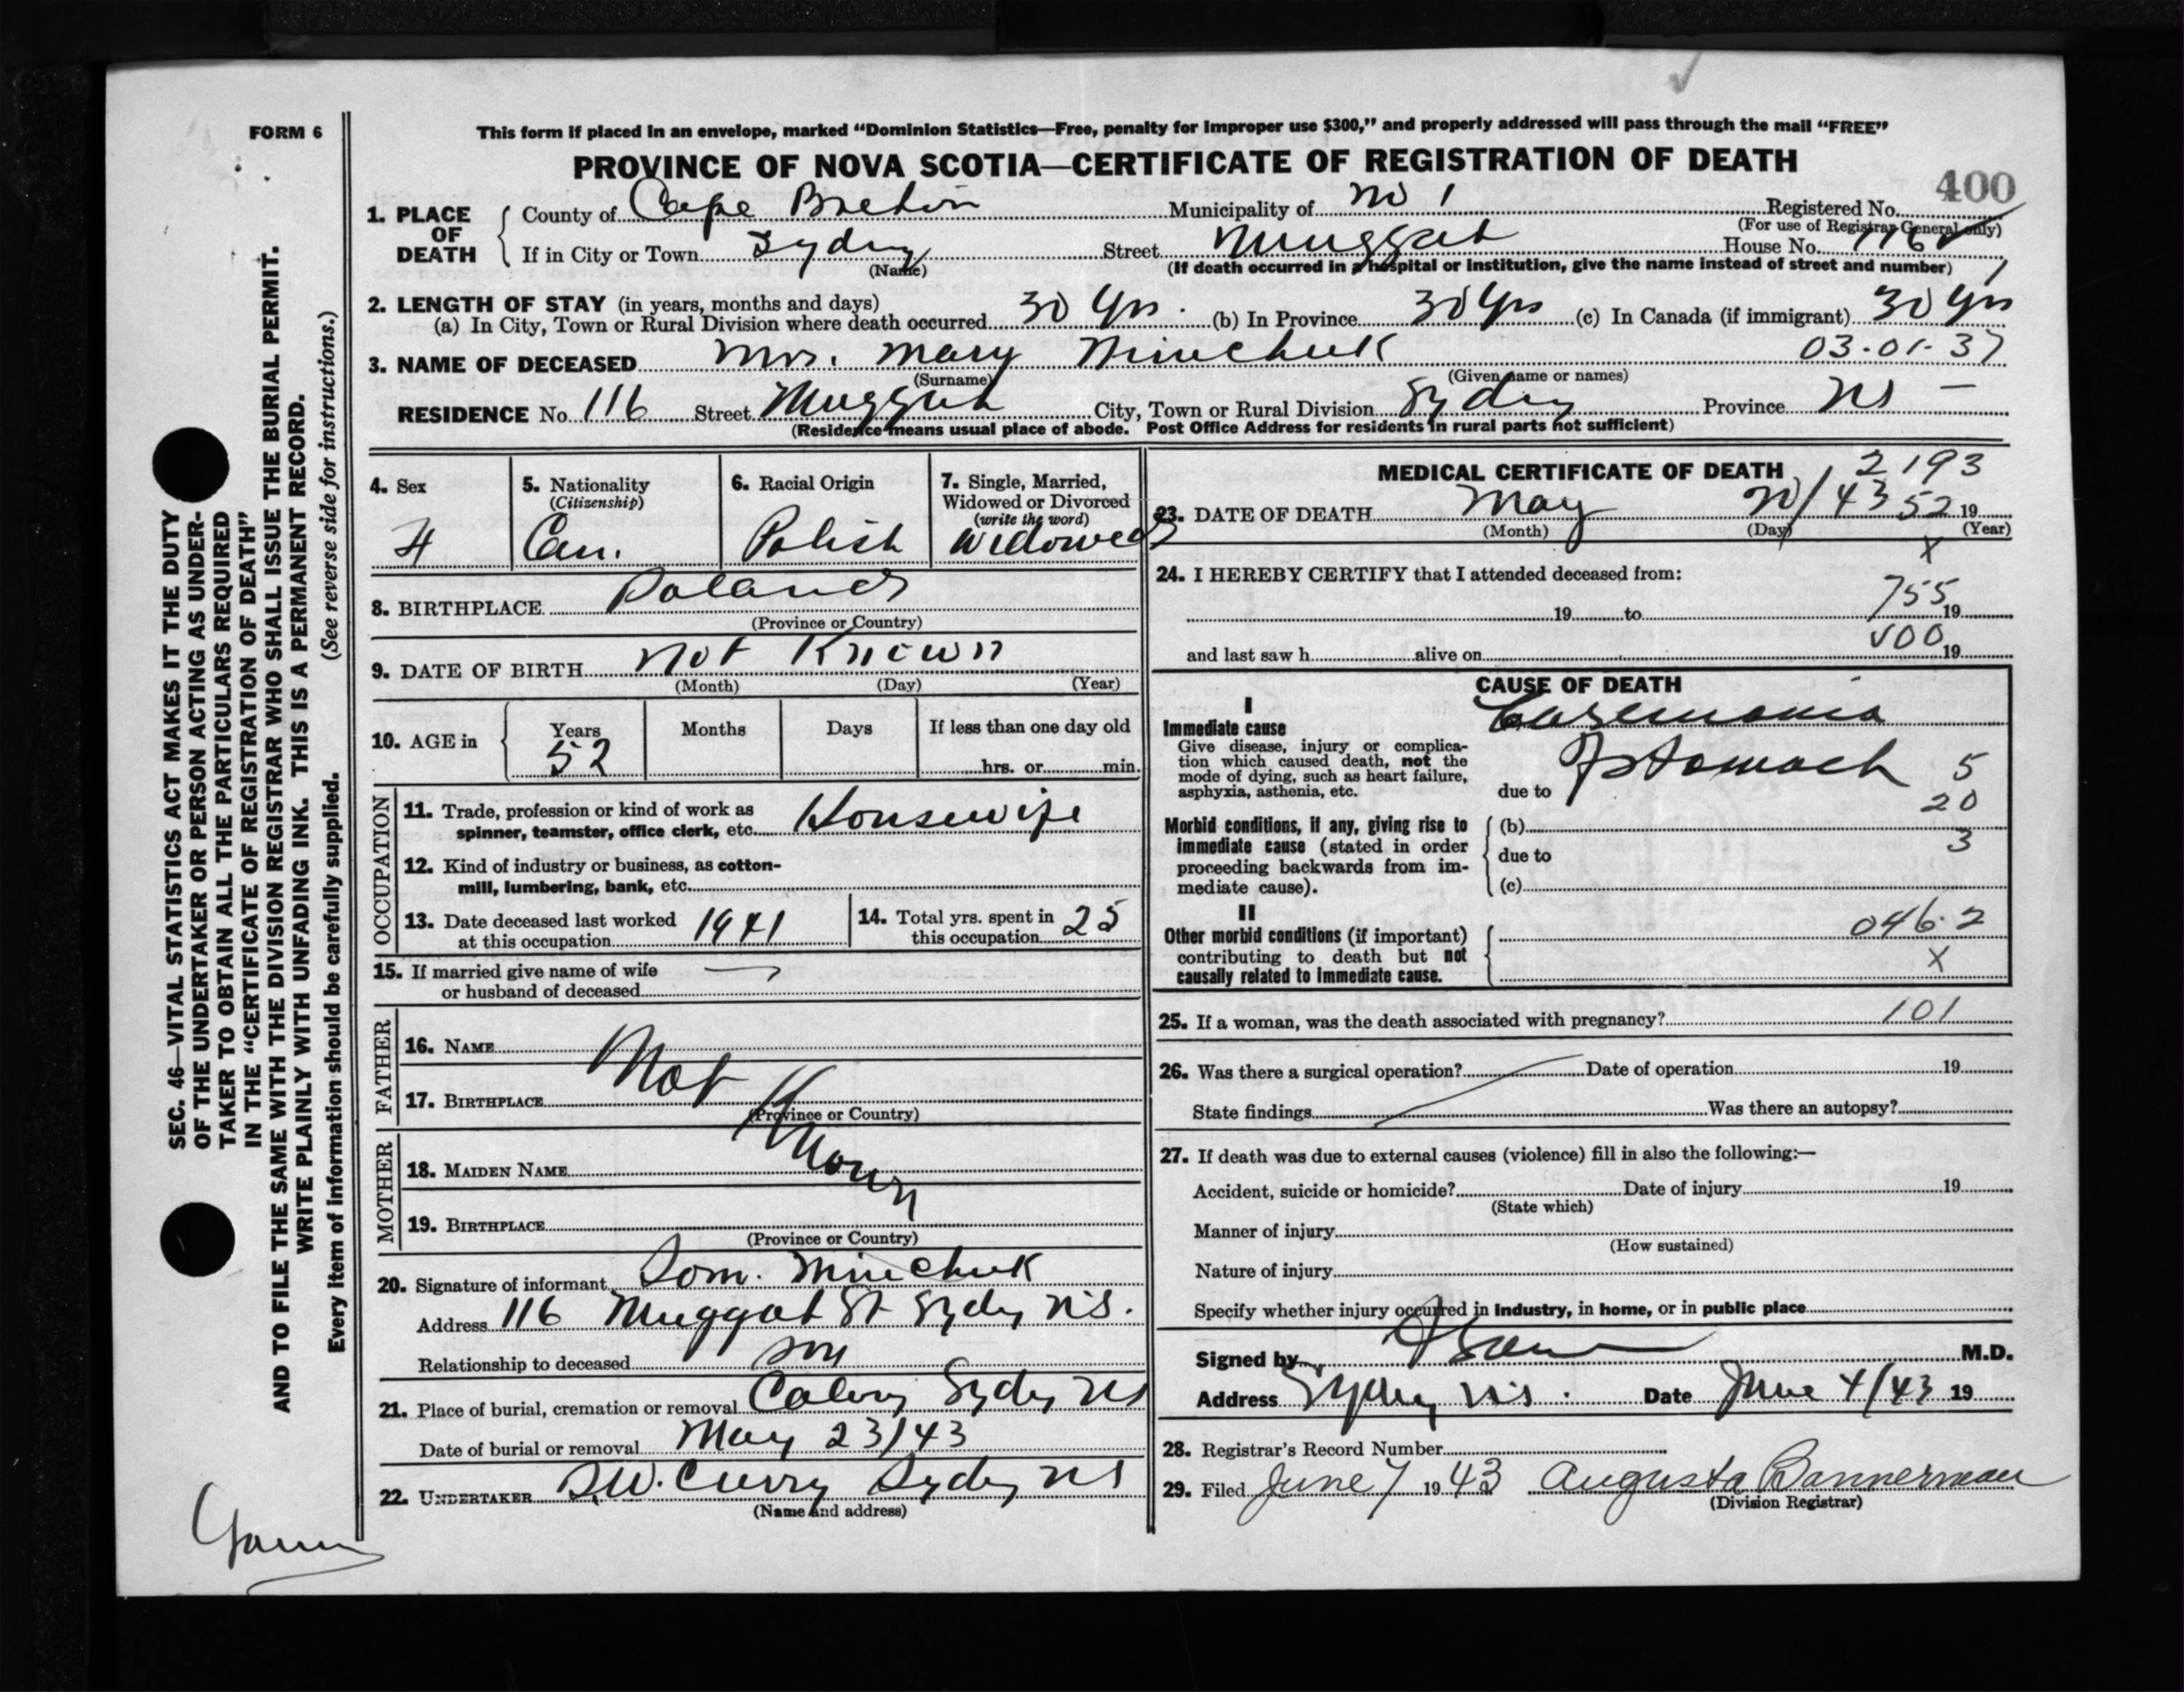 FORM 6
This form if placed in an envelope, marked “Dominion Statistics—Free, penalty for improper use $300,” and properly addressed will pass through the mail “FREE”
PROVINCE OF NOVA SCOTIA—CERTIFICATE OF REGISTRATION OF DEATH
400
1. PLACE OF DEATH
County of Cape Breton Municipality of No 1 Registered No.
(For use of Registrar General only)
If in City or Town Sydney Street Muggah House No. 116
(Name) (If death occurred in a hospital or institution, give the name instead of street and number)
2. LENGTH OF STAY (in years, months and days)
(a) In City, Town or Rural Division where death occurred 30 Yrs. (b) In Province 30 Yrs (c) In Canada (if immigrant) 30 Yrs
3. NAME OF DECEASED Mrs. Mary Minchuk 03-01-37
(Surname) (Given name or names)
RESIDENCE No. 116 Street Muggah City, Town or Rural Division Sydney Province NS —
(Residence means usual place of abode. Post Office Address for residents in rural parts not sufficient)
4. Sex F
5. Nationality (Citizenship) Can.
6. Racial Origin Polish
7. Single, Married, Widowed or Divorced (write the word) Widowed
8. BIRTHPLACE Poland
(Province or Country)
9. DATE OF BIRTH Not Known
(Month) (Day) (Year)
10. AGE in Years 52 Months Days If less than one day old
hrs. or min.
OCCUPATION
11. Trade, profession or kind of work as spinner, teamster, office clerk, etc. Housewife
12. Kind of industry or business, as cotton-
mill, lumbering, bank, etc.
13. Date deceased last worked at this occupation 1941
14. Total yrs. spent in this occupation 25
15. If married give name of wife
or husband of deceased —
FATHER
16. NAME
17. BIRTHPLACE
(Province or Country)
Not Known
MOTHER
18. MAIDEN NAME
19. BIRTHPLACE
(Province or Country)
20. Signature of informant Tom. Minchuk
Address 116 Muggah St Sydney N.S.
Relationship to deceased son
21. Place of burial, cremation or removal Calvary Sydney NS
Date of burial or removal May 23/43
22. UNDERTAKER Curry Sydney NS
(Name and address)
MEDICAL CERTIFICATE OF DEATH
2193
23. DATE OF DEATH May 20/43 52 19
(Month) (Day) (Year)
X
24. I HEREBY CERTIFY that I attended deceased from:
19 to 755 19
and last saw h alive on V00 19
CAUSE OF DEATH
I
Immediate cause
Give disease, injury or complica-
tion which caused death, not the
mode of dying, such as heart failure,
asphyxia, asthenia, etc.
due to
Stomach 5
20
Morbid conditions, if any, giving rise to
immediate cause (stated in order
proceeding backwards from im-
mediate cause).
(b)
due to 3
(c)
II
Other morbid conditions (if important)
contributing to death but not
causally related to immediate cause.
046.2
X
25. If a woman, was the death associated with pregnancy? 101
26. Was there a surgical operation? Date of operation 19
State findings Was there an autopsy?
27. If death was due to external causes (violence) fill in also the following:—
Accident, suicide or homicide? Date of injury 19
(State which)
Manner of injury
(How sustained)
Nature of injury
Specify whether injury occurred in industry, in home, or in public place
Signed by M.D.
Address Sydney N.S. Date June 4/43 19
28. Registrar's Record Number
29. Filed June 7 1943 Augusta Bannerman
(Division Registrar)
SEC. 46—VITAL STATISTICS ACT MAKES IT THE DUTY
OF THE UNDERTAKER OR PERSON ACTING AS UNDER-
TAKER TO OBTAIN ALL THE PARTICULARS REQUIRED
IN THE “CERTIFICATE OF REGISTRATION OF DEATH”
AND TO FILE THE SAME WITH THE DIVISION REGISTRAR WHO SHALL ISSUE THE BURIAL PERMIT.
WRITE PLAINLY WITH UNFADING INK. THIS IS A PERMANENT RECORD.
Every item of information should be carefully supplied. (See reverse side for instructions.)